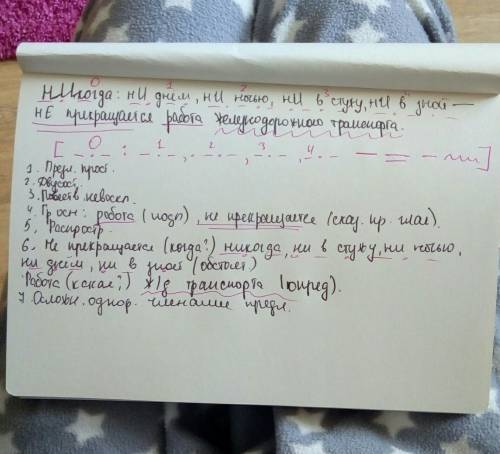 О 1 2 3 4
Никогда: ни днём, ни ночью, ни в стужу, ни в зной —
не прекращается работа железнодорожного транспорта.
О 1 2 3 4
1. Предл. прост.
2. Двусост.
3. Повеств невоскл.
4. Гр осн: работа (подл), не прекращается (сказ. пр. глаг).
5, Распростр.
6. Не прекращается (когда?) никогда, ни в стужу, ни ночью,
ни днём, ни в зной (обстоят)
Работа (какая?) ж/д транспорта (опред).
7 Осложн. однор. членами предл.